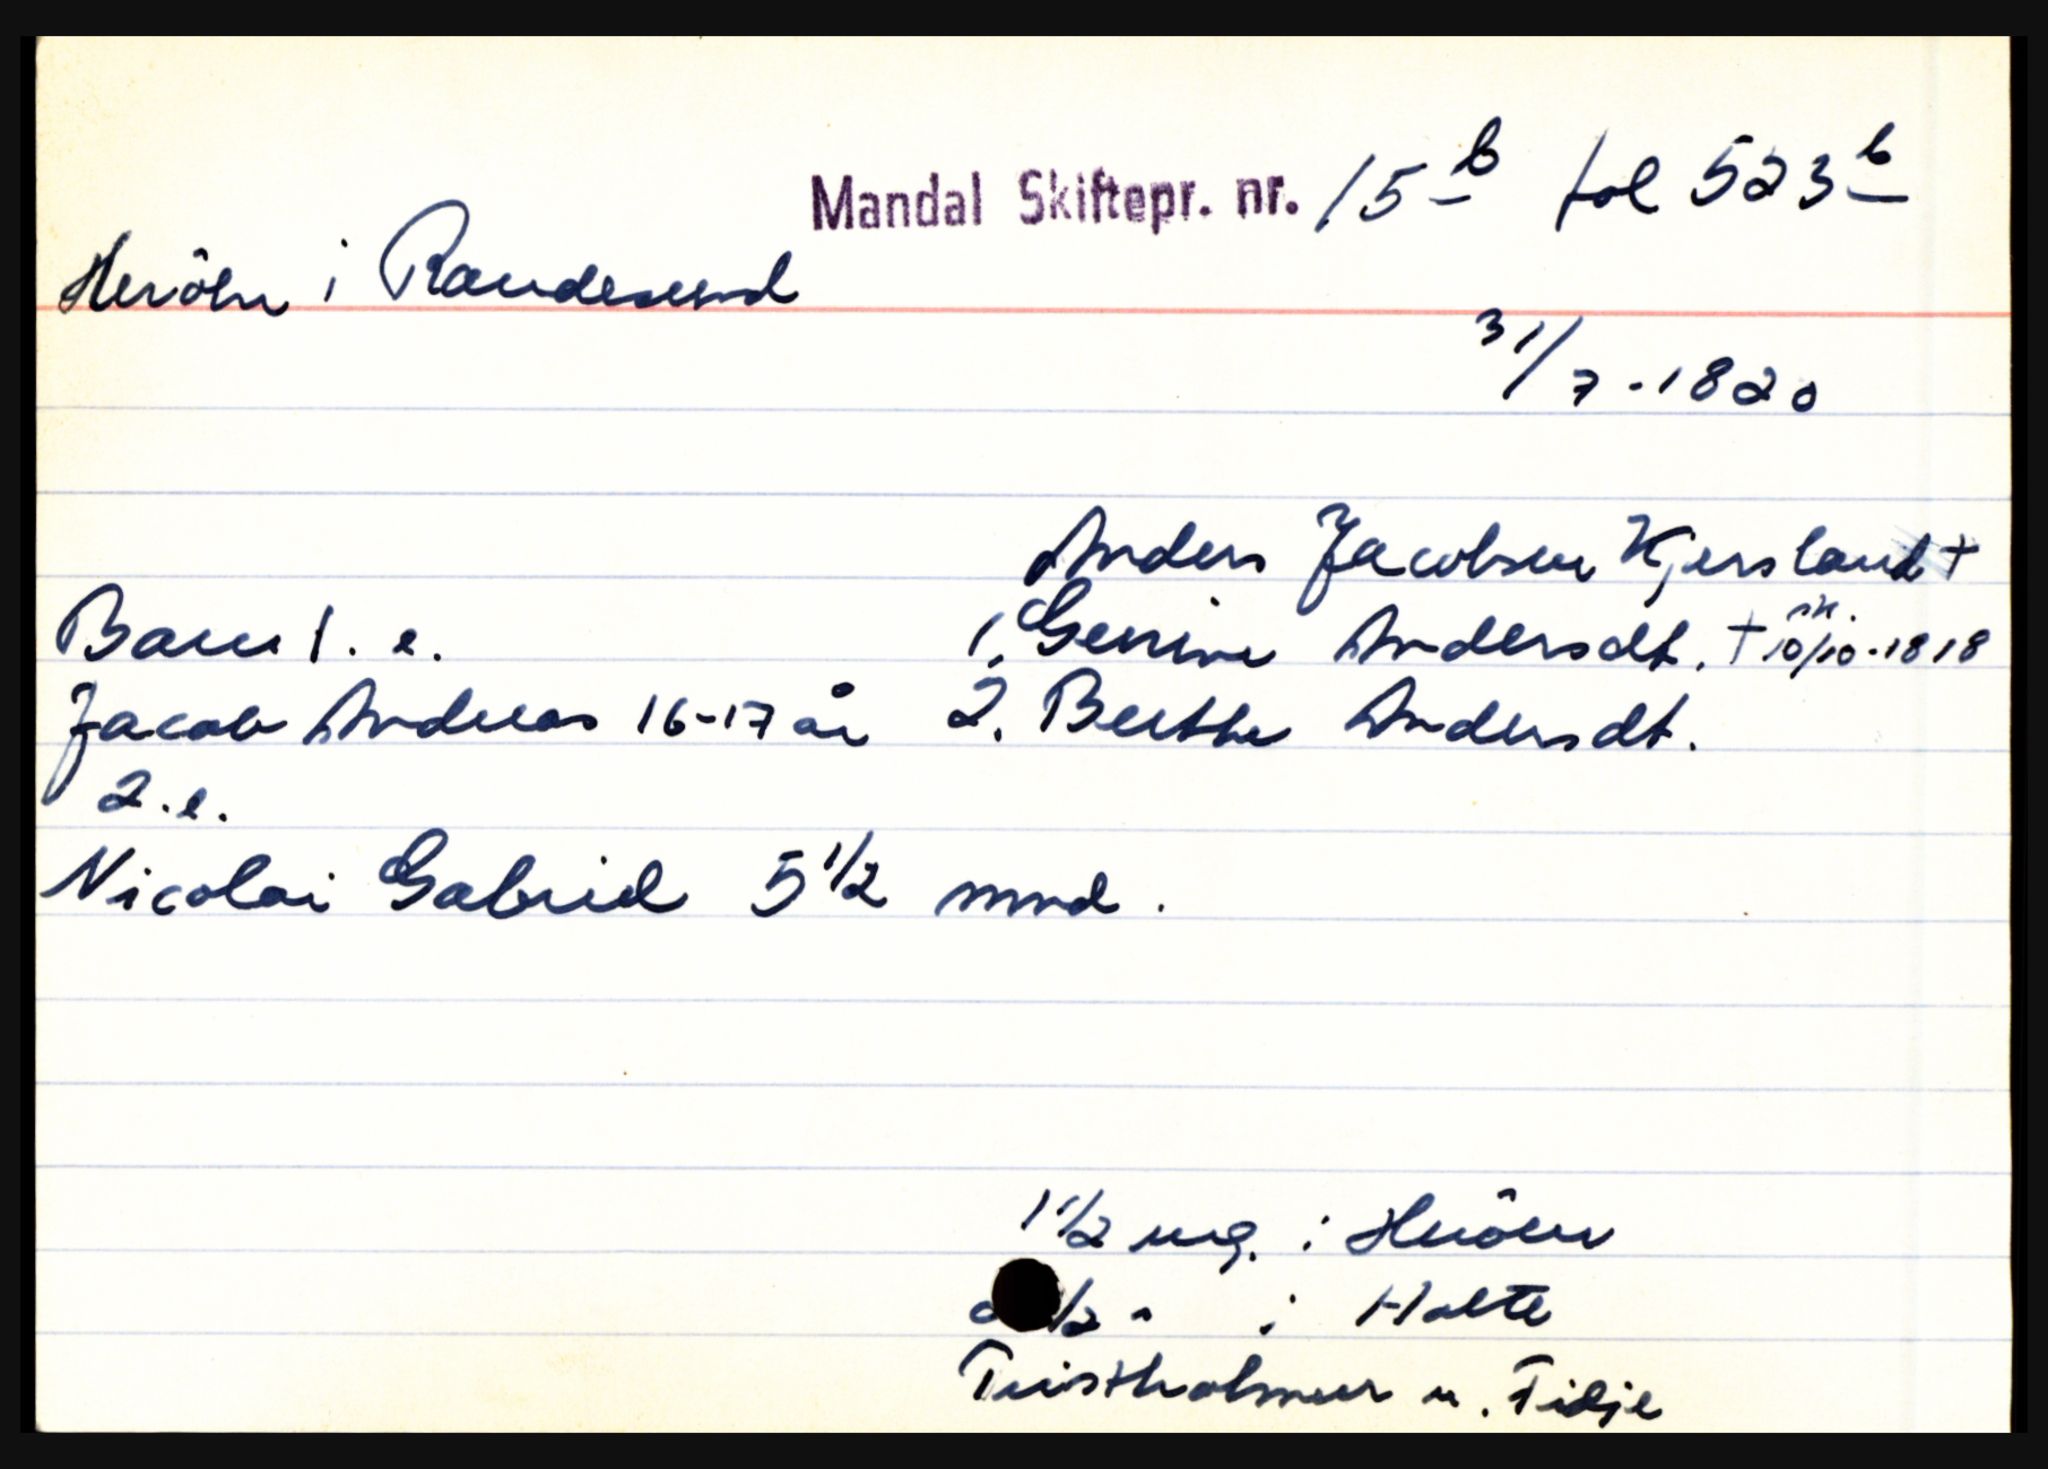 Mandal Skiftepr. nr. 15 b fol 523 b
Heröen i Randesund
31/7 - 1820
Anders Jacobsen Kjersland +
Barn 1. e. 1. Gesine Andersdt. + sk. 10/10-1818
Jacob Andreas 16-17 år 2. Berthe Andersdt.
2. e.
Nicolai Gabriel 5 1/2 mnd.
1 1/2 mg. i Heröen
1/2 " i Holte
Tuistholmen u. Tilje